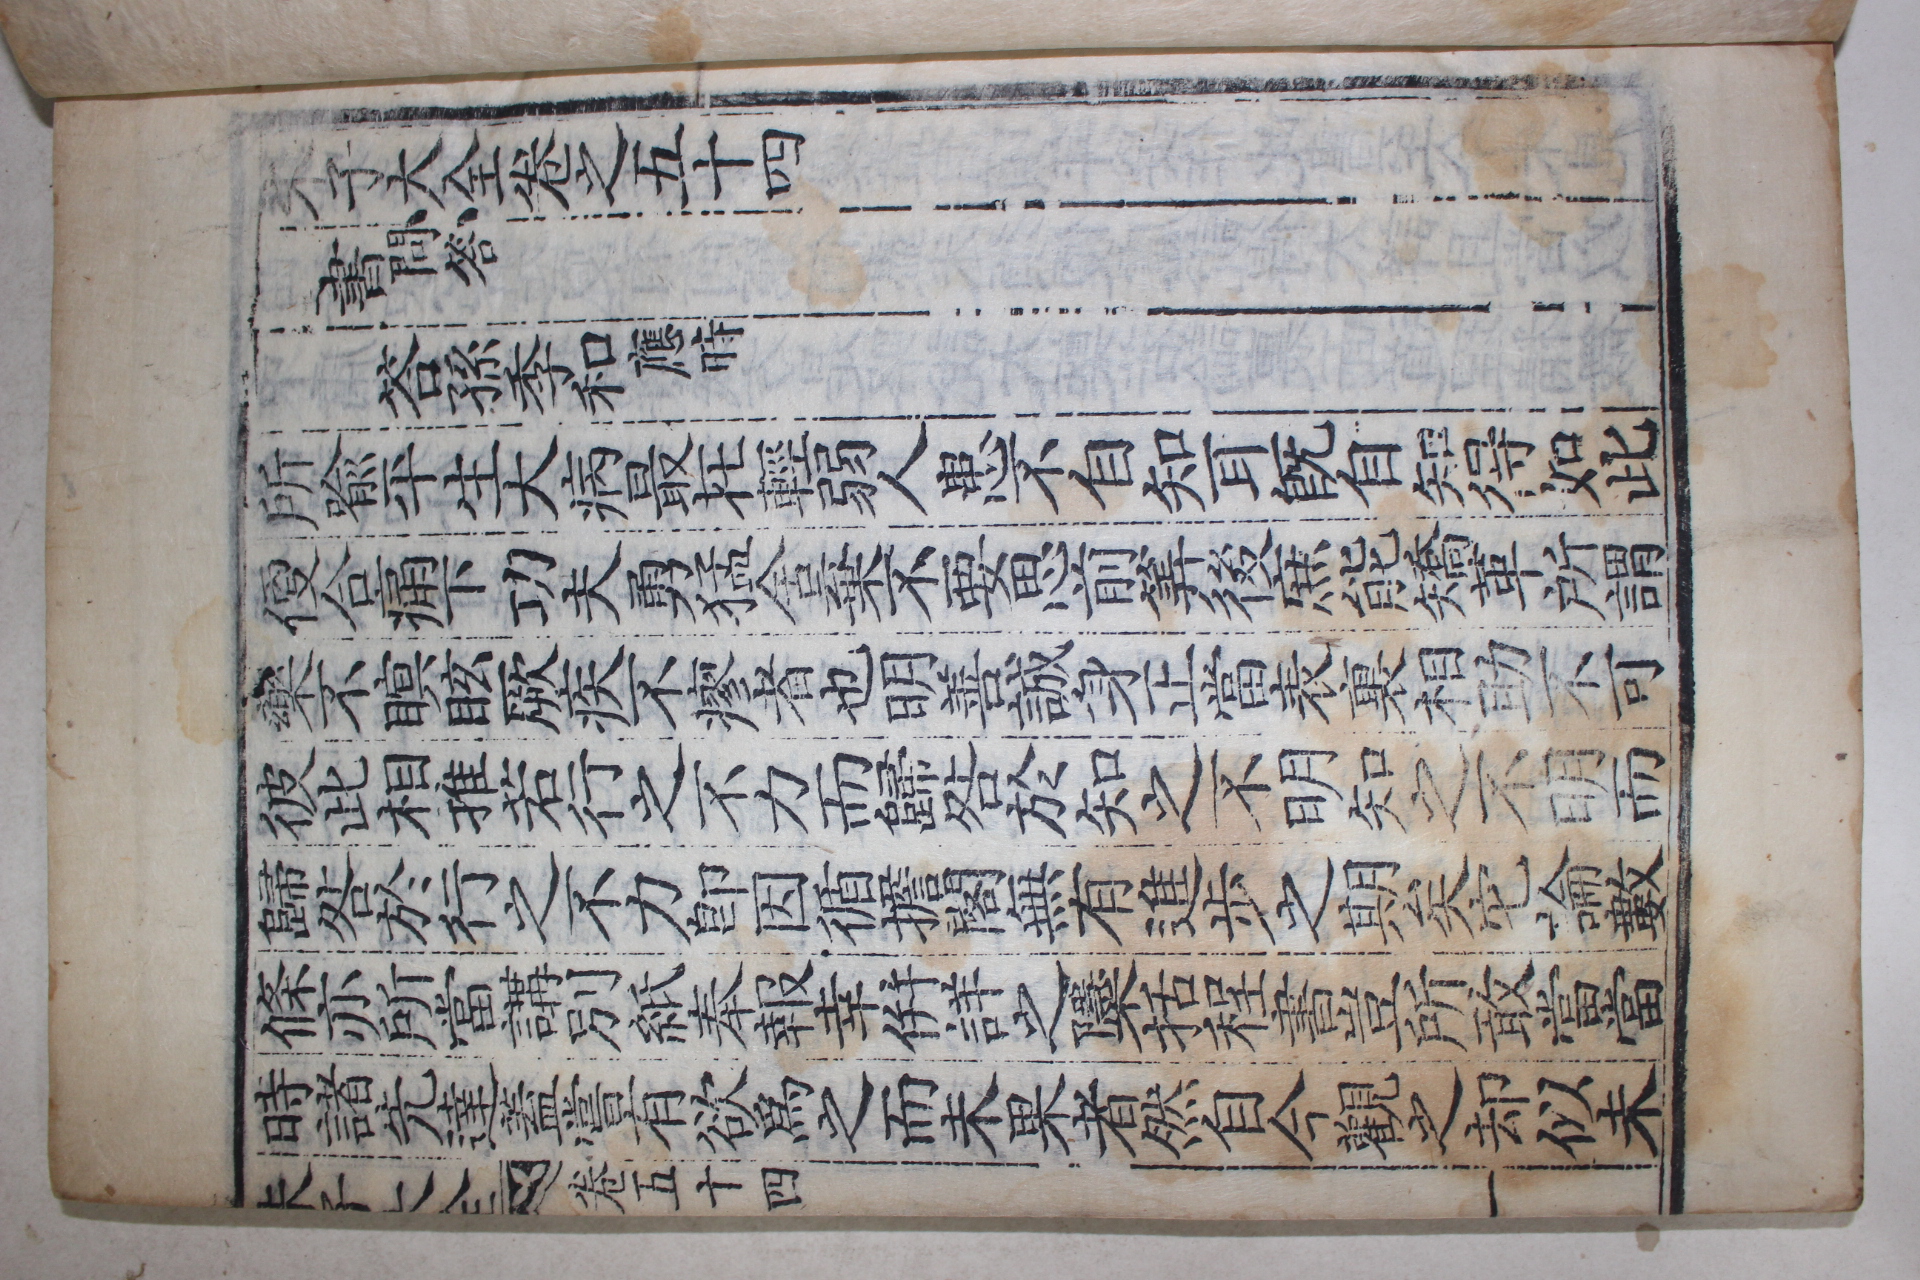 朱子大全卷之五十四
書問答
答孫季和應時
所喻平生大病最在輕弱人患不自知耳既自知得如此
便合痛下功夫勇猛舍棄不要思前筭後庶能矯革所謂
藥不瞑眩厥疾不瘳者也明善誠身正當表裏相助不可
彼此相推若行之不力而歸咎於知之不明知之不明而
歸咎於行之不力即因循擔閣無有進步之期矣它論數
條亦所當講別紙奉報幸併詳之隱栝程書豈所敢當當
時諸先達蓋嘗有欲爲之而未果者然自今觀之却似未
朱子大全 卷五十四 一